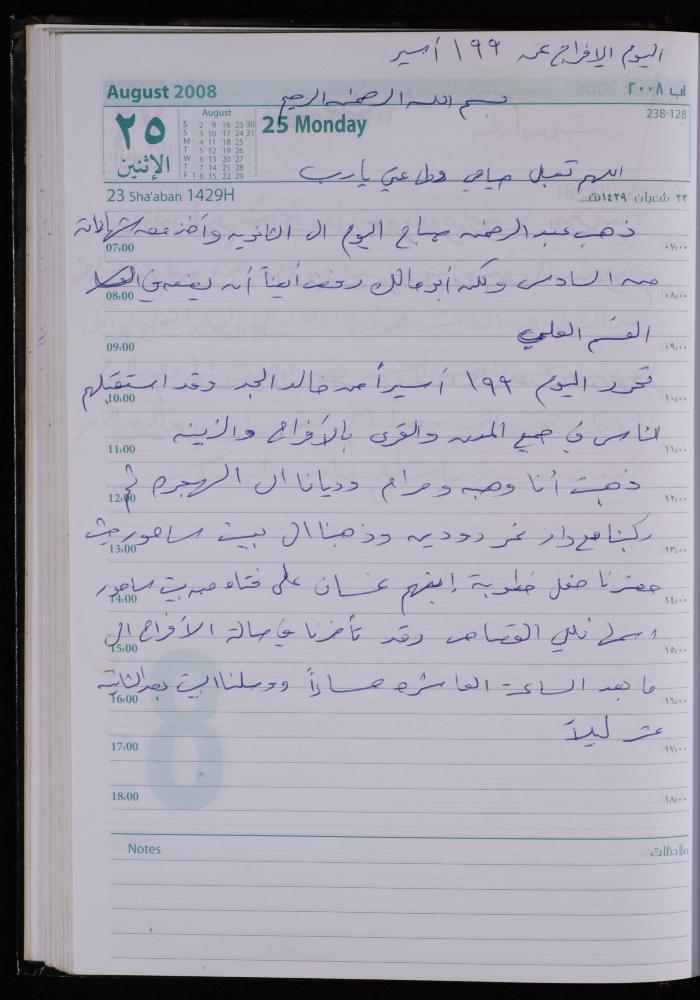 اليوم الافراج عن ١٩٩ أسير
August 2008
آب ٢٠٠٨
بسم الله الرحمن الرحيم
238-128
٢٥
الإثنين
August
S 2 9 16 23 30
S 3 10 17 24 31
M 4 11 18 25
T 5 12 19 26
W 6 13 20 27
T 7 14 21 28
F 1 8 15 22 29
25 Monday
اللهم تقبل صيامي وطاعتي يارب
23 Sha'aban 1429H
٢٣ شعبان ١٤٢٩هـ
ذهب عبد الرحمن صباح اليوم الى الثانوية وأخذ معه شهاداته
07:00 ٠٧:٠٠
من السادس ولكن أبو مالك رفض أيضاً أن يضعه في
08:00 ٠٨:٠٠
القسم العلمي
09:00 ٠٩:٠٠
تحرر اليوم ١٩٩ أسيراً من خالد المجد وقد استقبلهم
10:00 ١٠:٠٠
الناس في جميع المدن والقرى بالأفراح والزينه
11:00 ١١:٠٠
ذهبت أنا وهبه ومرام وديانا الى المهجره ثم
12:00 ١٢:٠٠
ركبنا مع دار نمر دودين وذهبنا الى بيت ساحور حيث
13:00 ١٣:٠٠
حضرنا حفل خطوبة إبنهم غسان على فتاه من بيت ساحور
14:00 ١٤:٠٠
اسمها نللي القصاص وقد تأخرنا في صالة الأفراح الى
15:00 ١٥:٠٠
ما بعد الساعة العاشره مساءاً ووصلنا البيت بعد الثانية
16:00 ١٦:٠٠
عشر ليلاً
17:00 ١٧:٠٠
8
18:00 ١٨:٠٠
Notes
ملاحظات